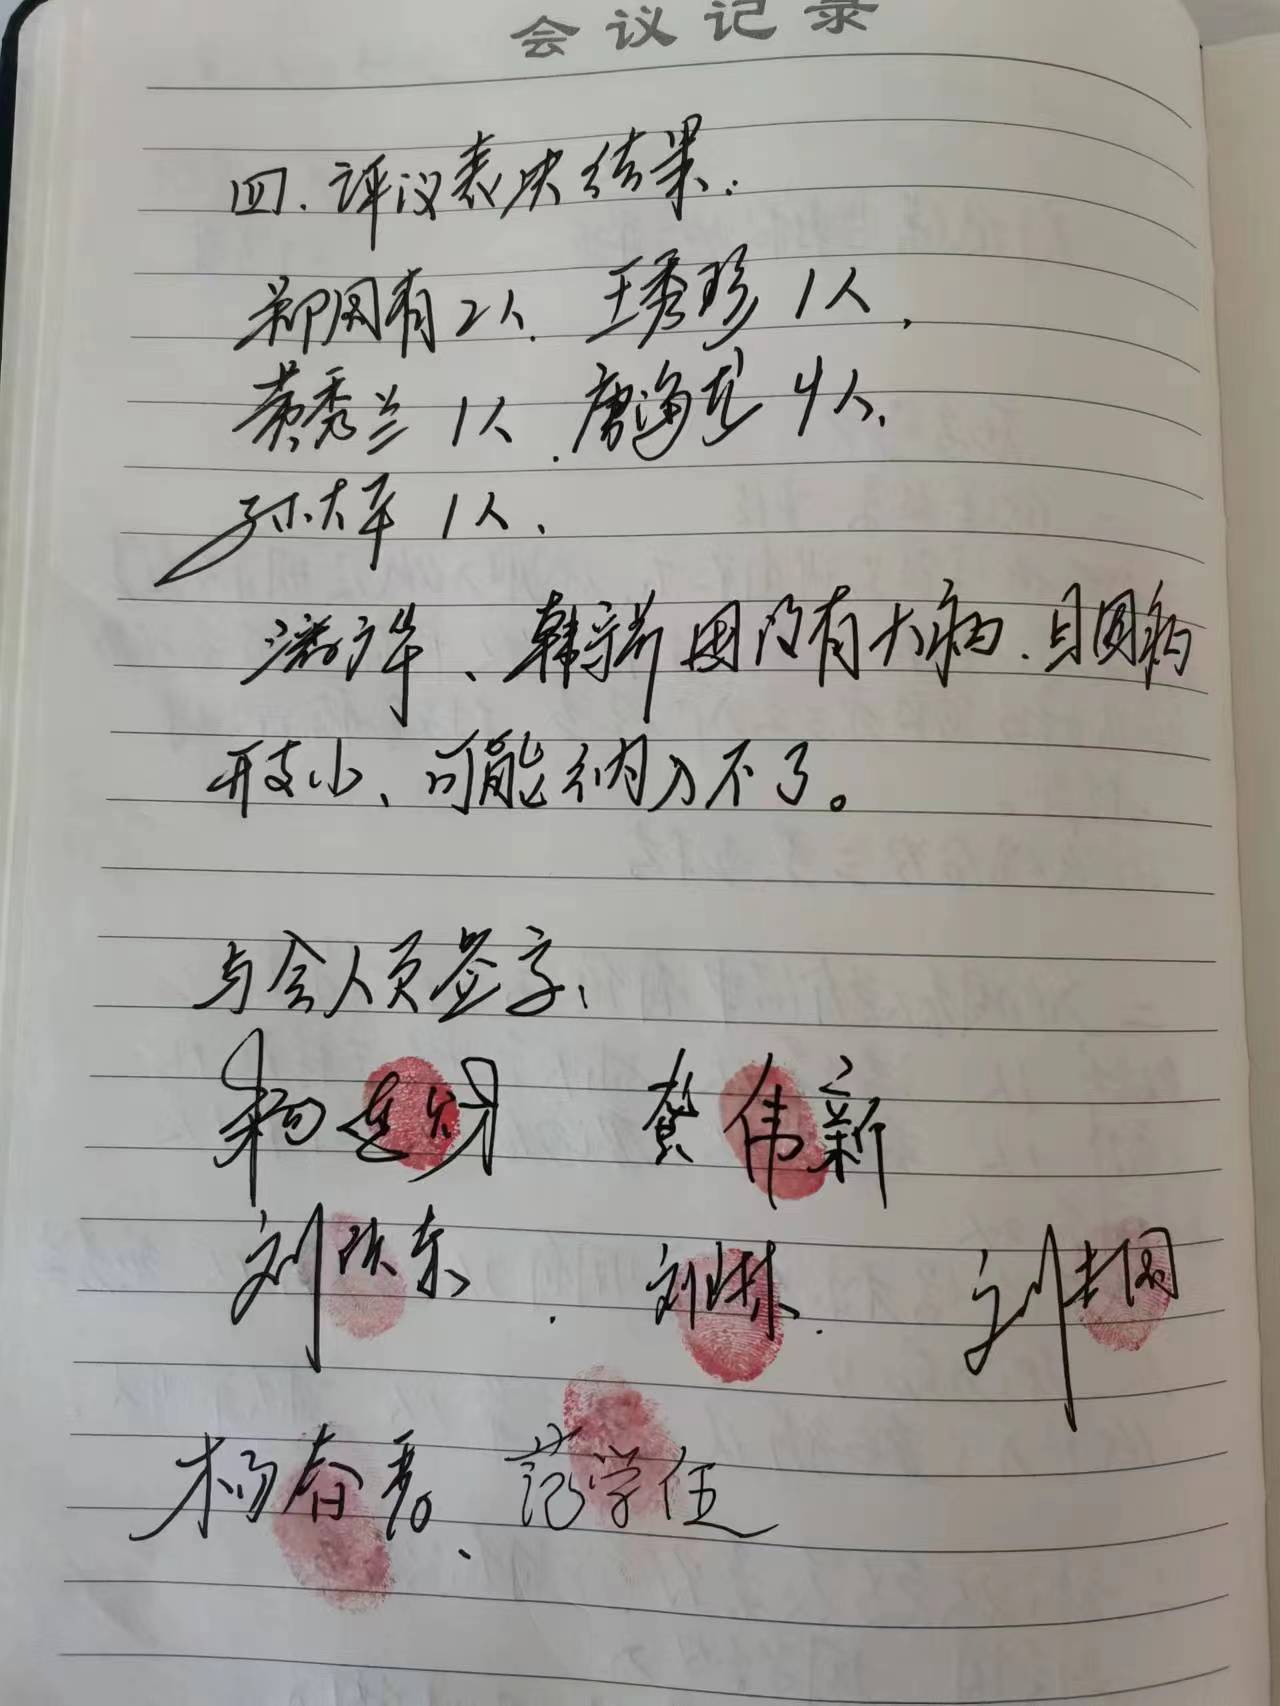 会议记录
四、评议表决结果:
郑国有2人、王秀珍1人,
黄秀兰1人、唐海龙4人、
孙大平1人、
韩 因没有大病、且因病
开支小、可能纳入不了。
与会人员签字:
杨 龚伟新
刘 东 刘 林 刘 国
杨春秀、范学伍